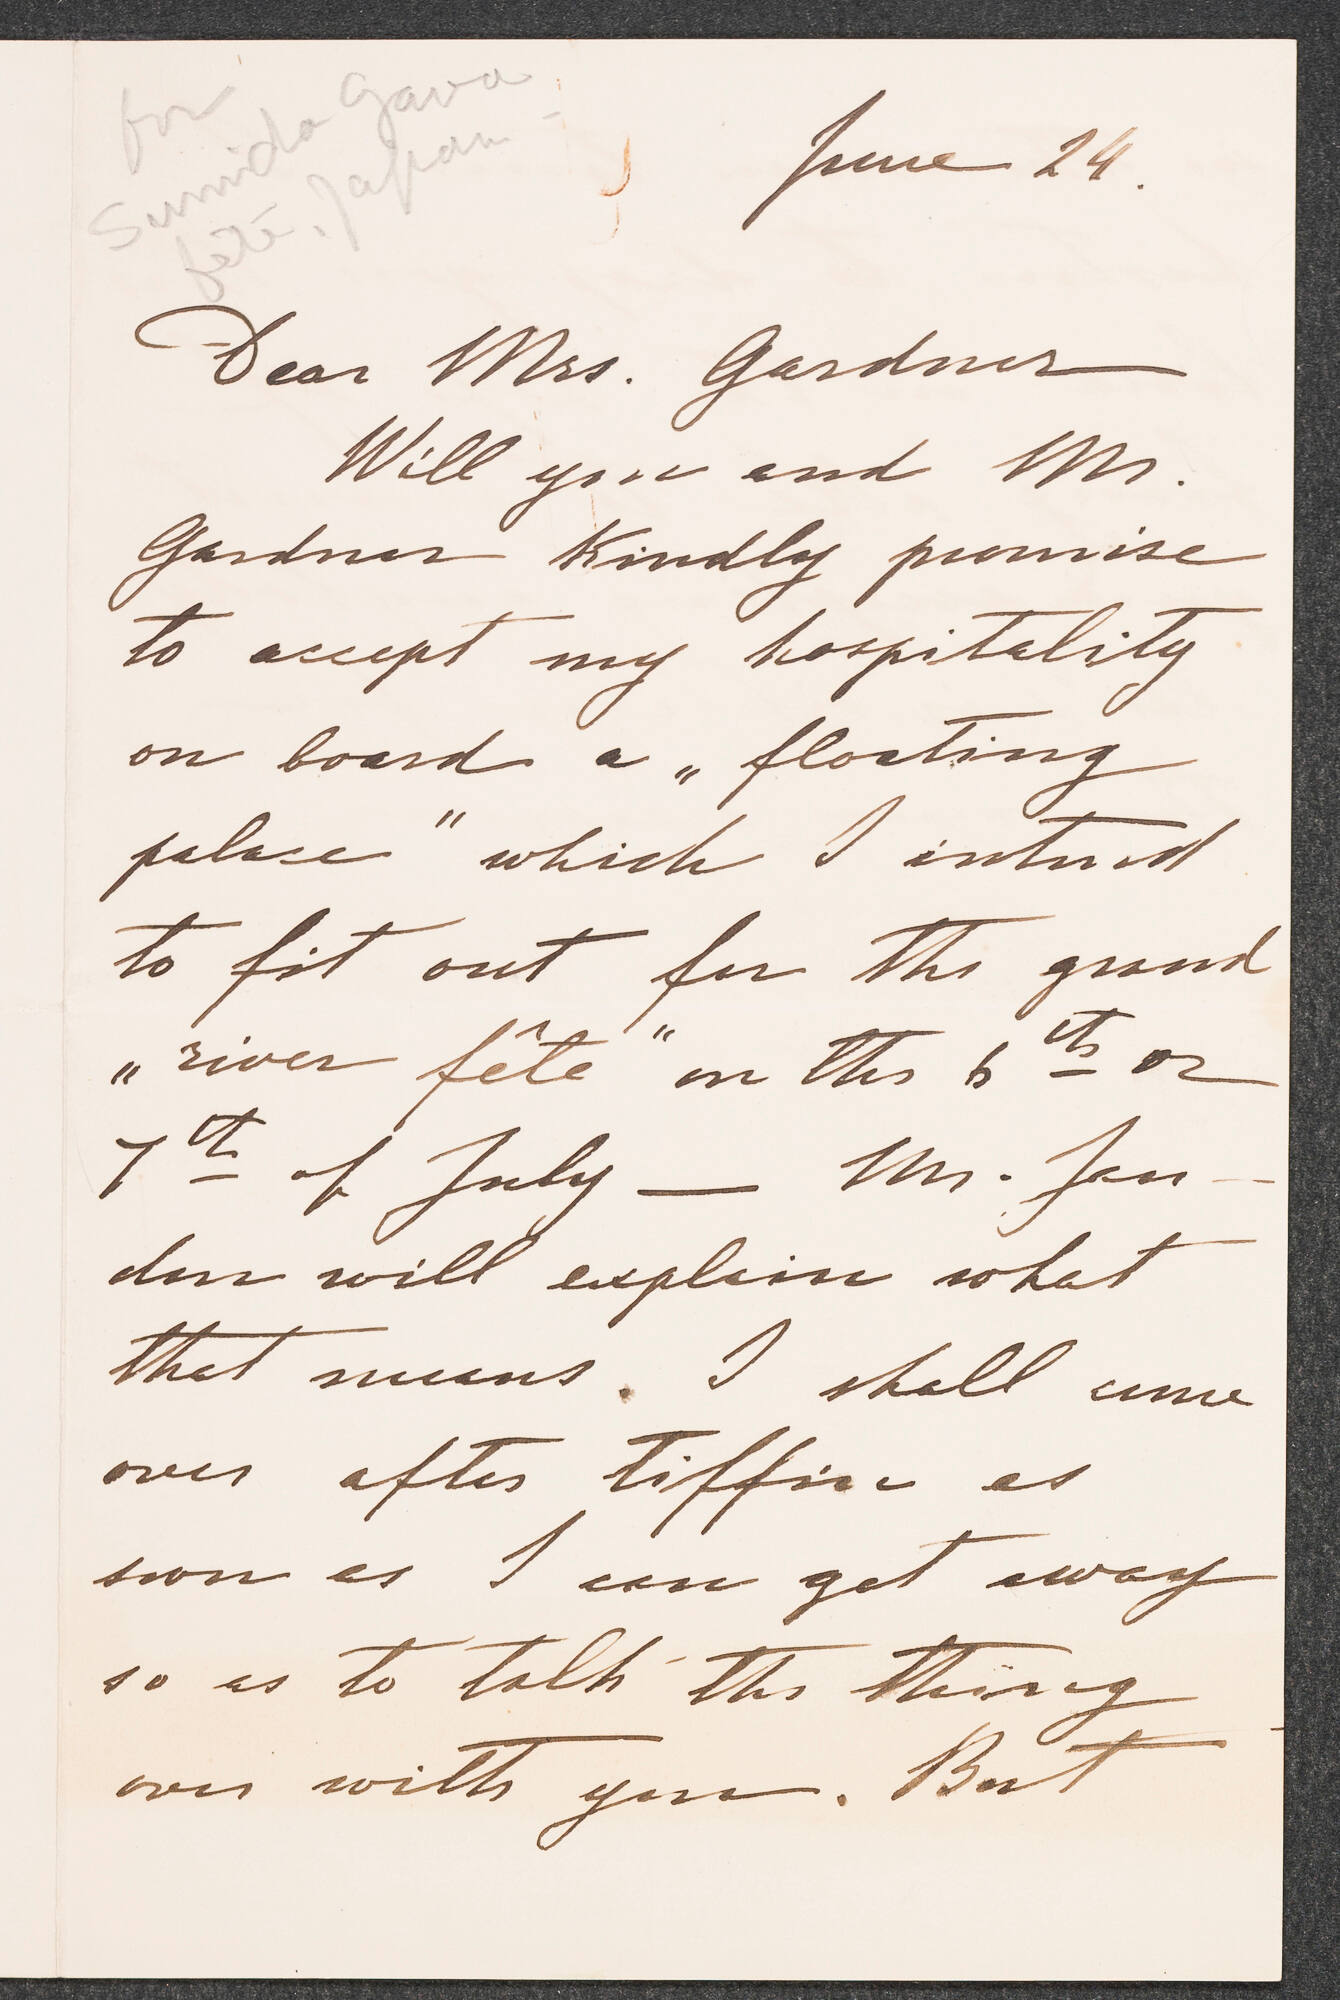 for
Sumida Gava
fête, Japan -
June 24.
Dear Mrs. Gardner
Will you and Mr.
Gardner kindly promise
to accept my hospitality
on board a „floating
palace" which I intend
to fit out for the grand
„river fête" on the 6th or
7th of July — Mr. Jan-
don will explain what
that means. I shall come
over after tiffin as
soon as I can get away
so as to talk the thing
over with you. But